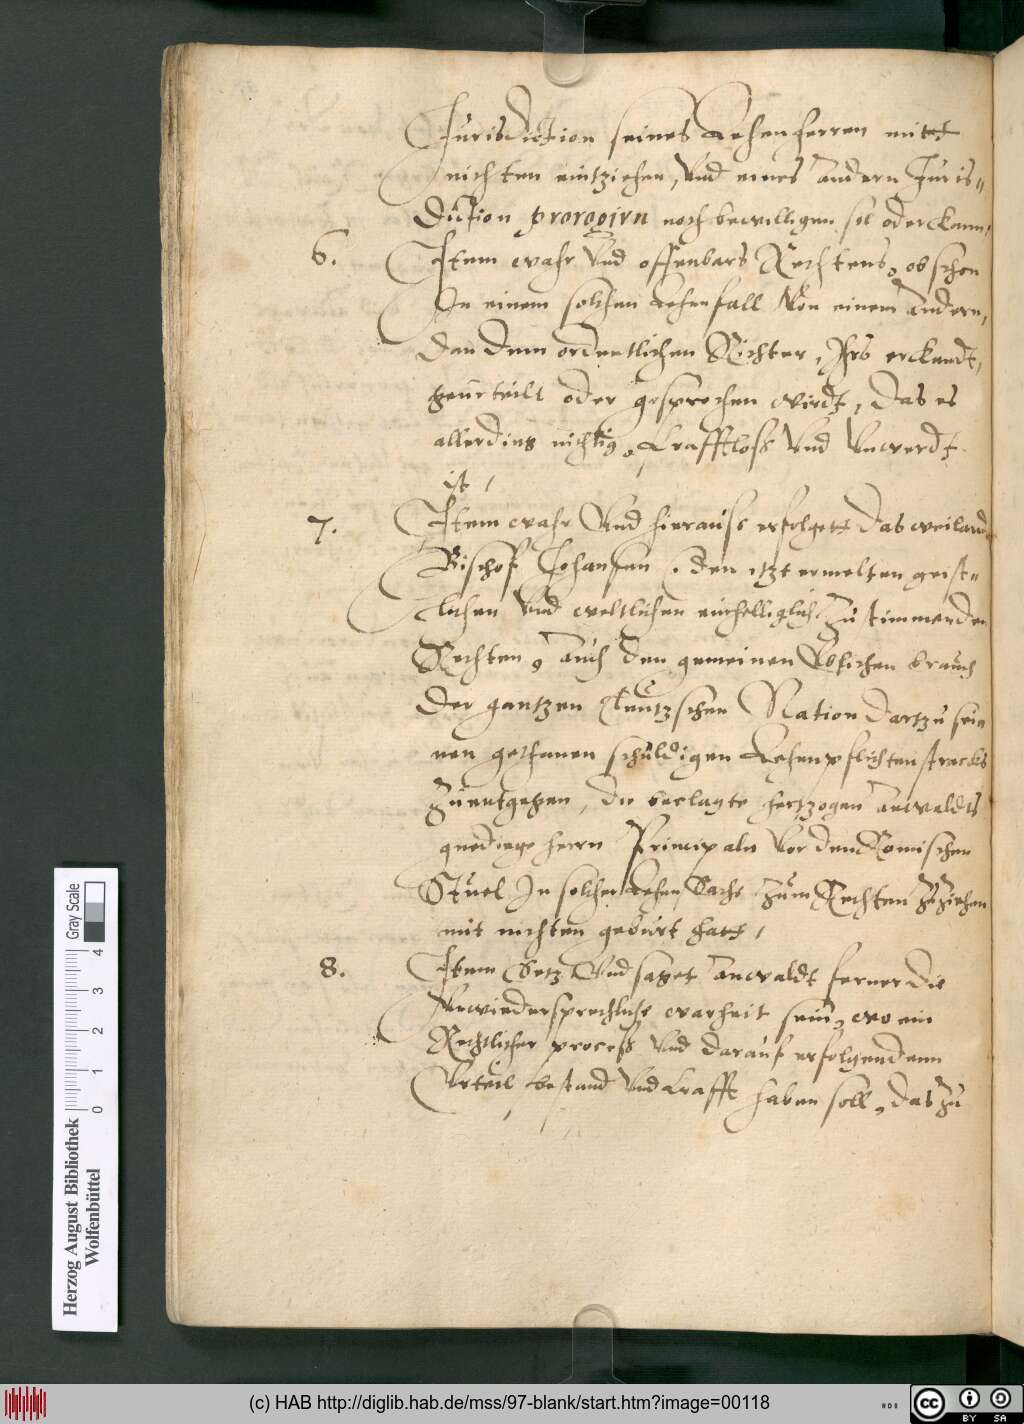 Jurisdiction seines Lehenherren mitt
nichten eintziehen, Vnd eines andern Juris-
diction prorogirn noch bewilligen sol oder kann,
6. Item wahr Vnd offenbars Rechtens, ob schon
In einem solchen Lehenfall Von einem andern,
dan dem ordentlichen Richter, erkandt,
geurteilt oder gesprochen wirdt, das es
allerdings nichtig, krafftloss Vnd Vnwerdt
ist,
7. Item wahr Vnd hierauss erfolgett das weiland
Bischof Johansen, den itzt ermelten geist-
lichen Vnd weltlichen einhelliglich zu stimmenden
Rechten, auch den gemeinen Loblichen brauch
der gantzen Teutzschen Nation dartzu sei-
nen gethanen schuldigen Lehenpflichten stracks
zuentgegen, die beclagte hertzogen anwaldts
gnedige herrn Principaln Vor den Romischen
Stuel In solcher Lehen Sache zum Rechten zuziehen
mit nichten geburt hatt,
8. Item Setz Vnd saget anwaldt ferner die
Vnwiedersprechliche warheit sein, wo ein
Rechtlicher process Vnd darauf erfolgendem
Vrteil bestand Vnd krafft haben soll, das zu
Herzog August Bibliothek
Wolfenbüttel
Gray Scale
0 1 2 3 4
(c) HAB http://diglib.hab.de/mss/97-blank/start.htm?image=00118
cc BY SA